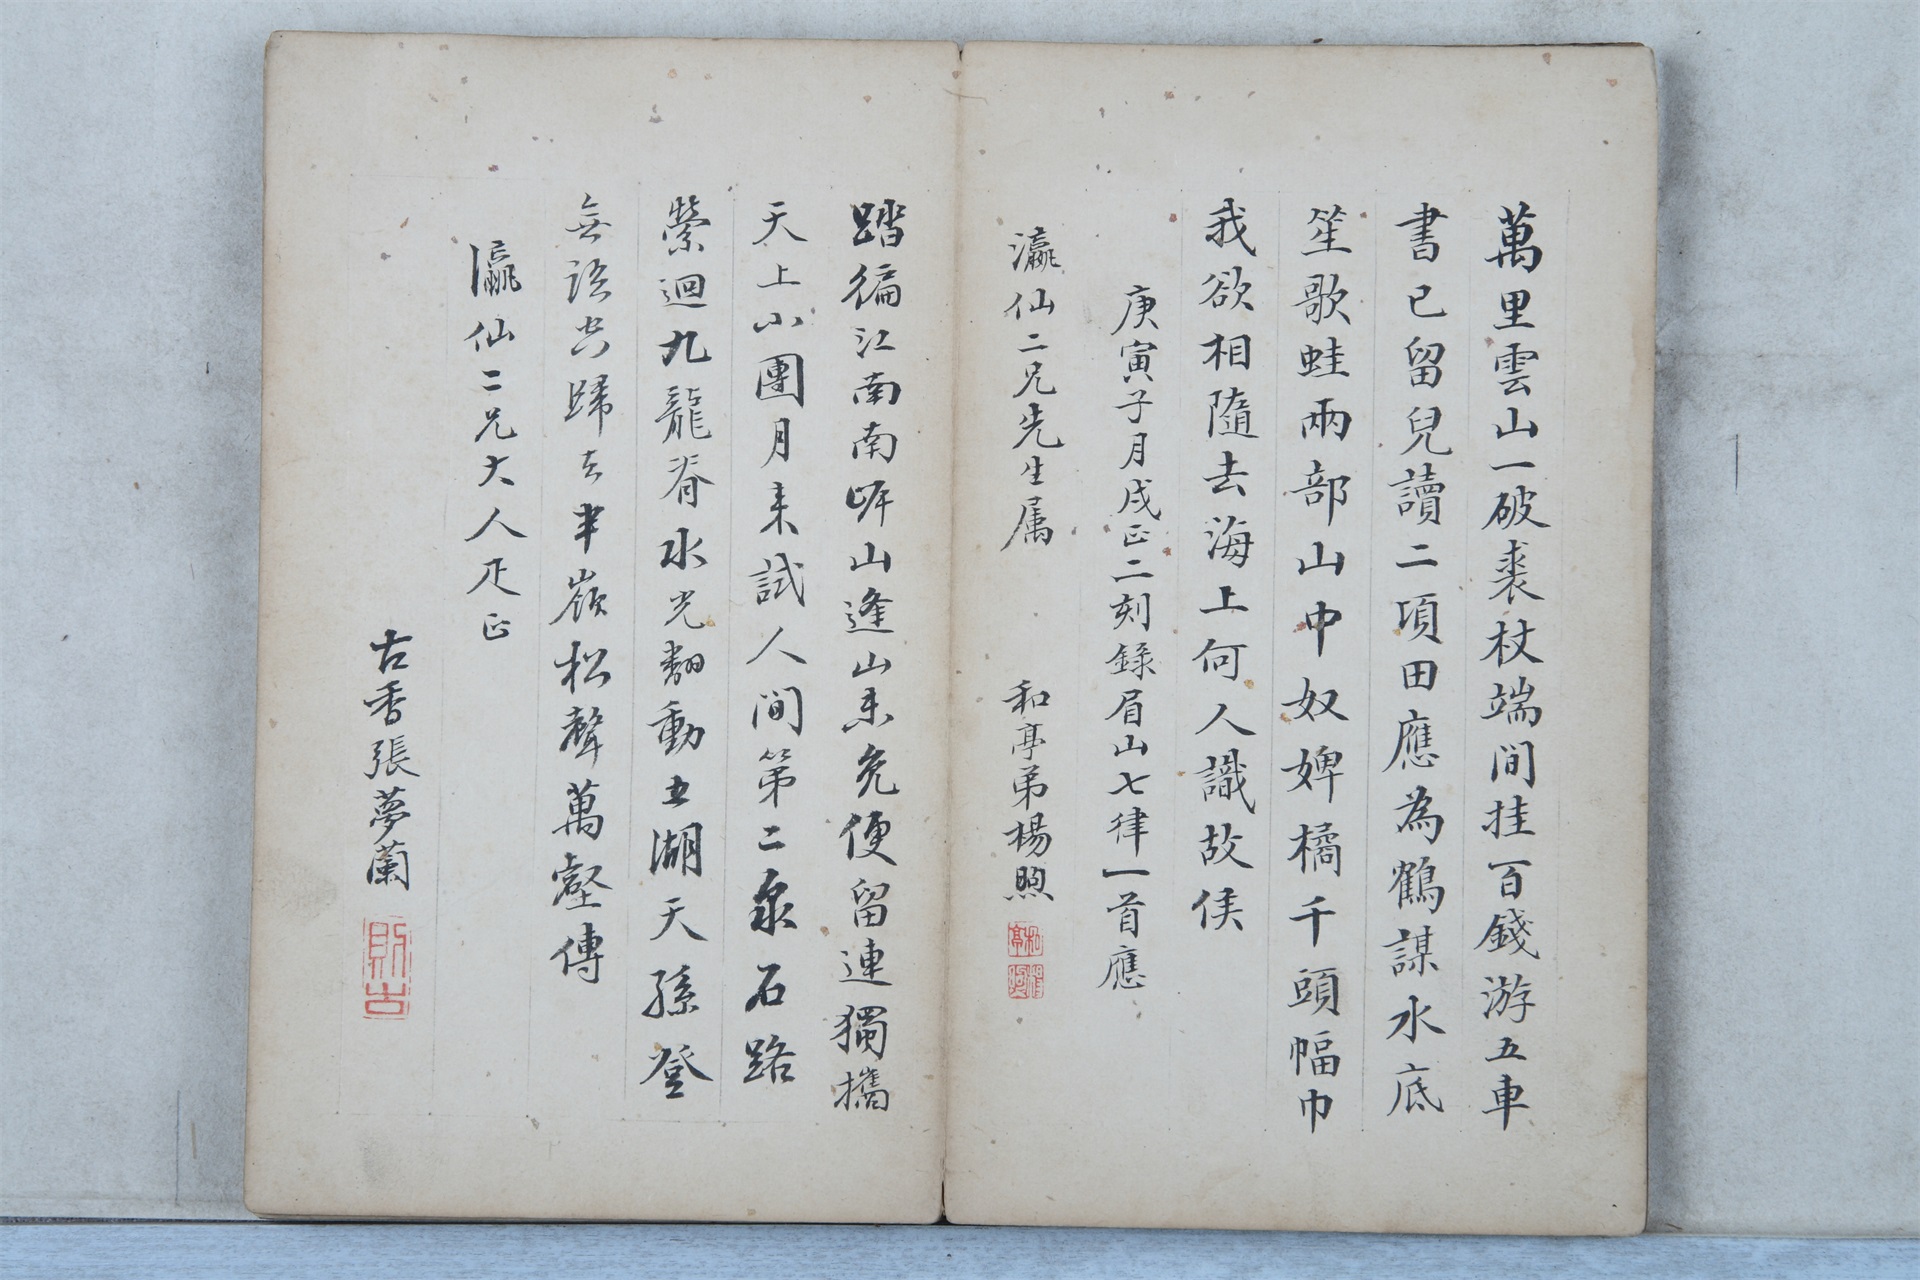 萬里雲山一破裘杖端間挂百錢游五車
書已留兒讀二項田應為鶴謀水底
笙歌蛙兩部山中奴婢橘千頭幅巾
我欲相隨去海上何人識故侯
庚寅子月戌正二刻錄眉山七律一首應
瀛仙二兄先生属
和亭弟楊煦
踏徧江南南岸山逢山未免便留連獨攜
天上小團月来試人間第二泉石路
縈迴九龍脊水光翻動五湖天孫登
無語空歸去半嶺松聲萬壑傳
瀛仙二兄大人疋正
古香張夢蘭